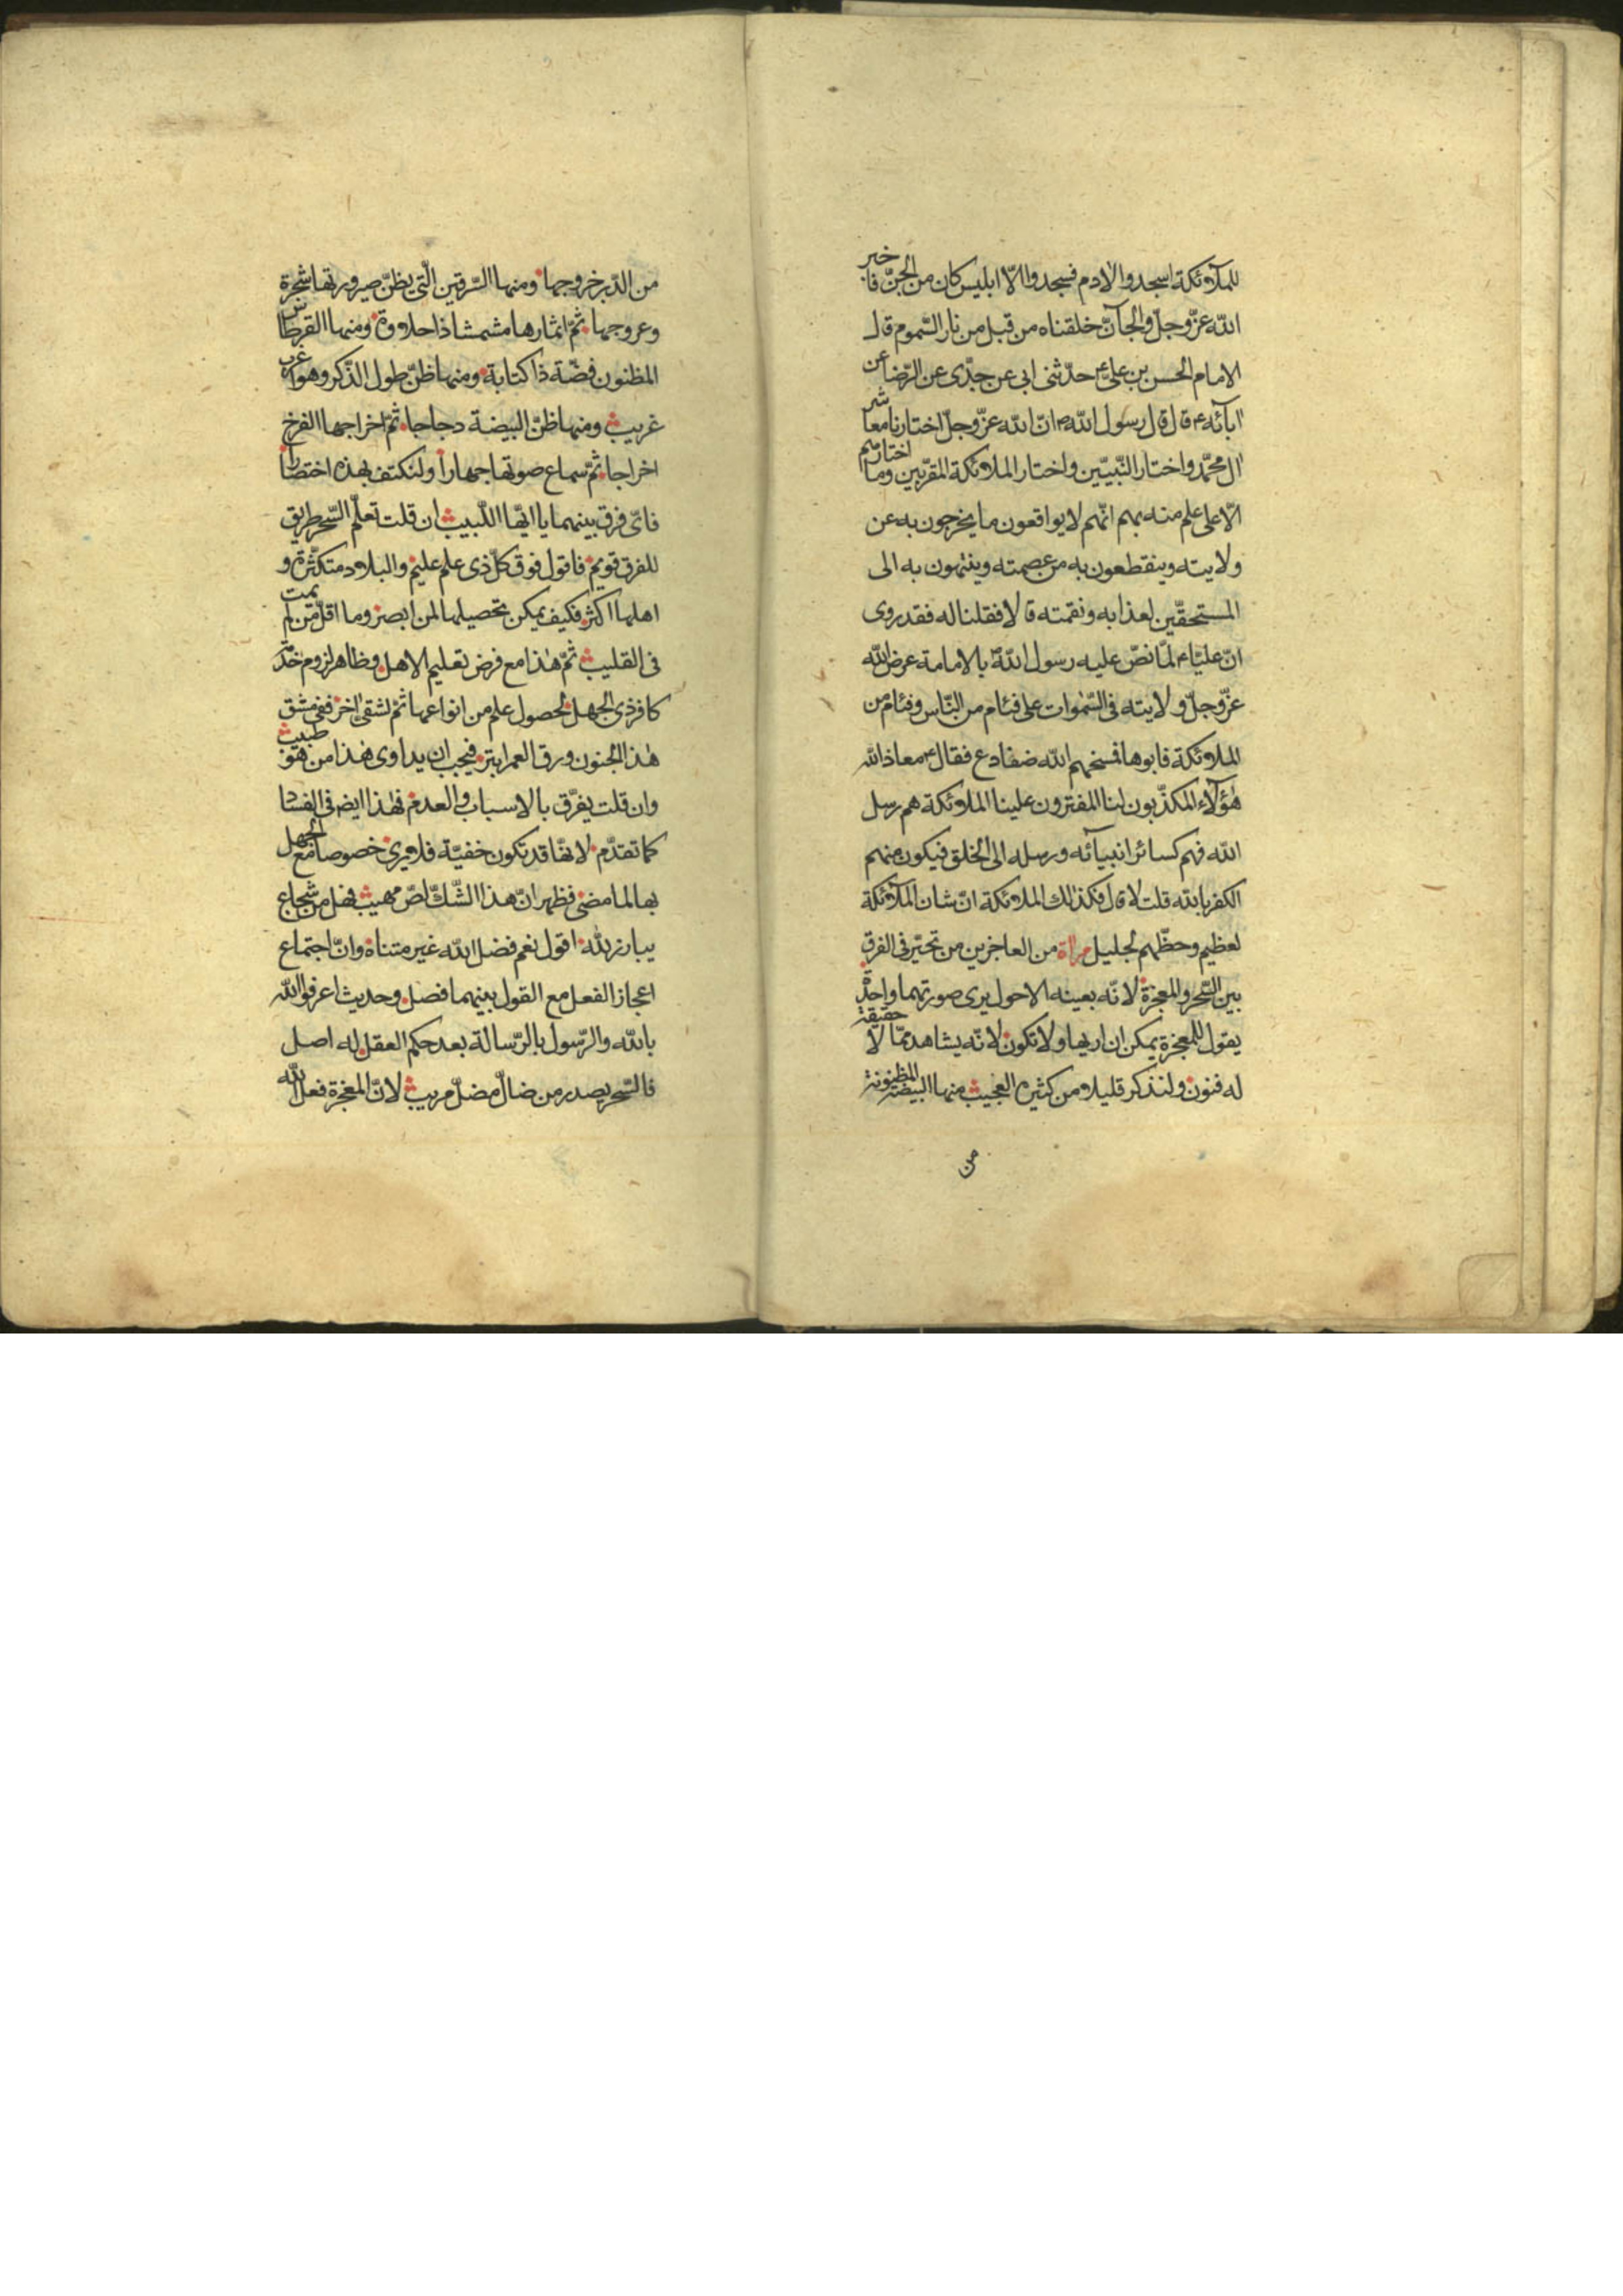 للملآئكة اسجدوا لادم فسجدوا الّا ابليس كان من الجنّ فاخبر
الله عزّ وجلّ والجآنّ خلقناه من قبل من نار السّموم قال
الامام الحسن بن علىّ ع حدّثنى ابى عن جدّى عن الرّضا عن
ابآئه ع قال قال رسول الله ص انّ الله عزّ وجلّ اختارنا معاشر
ال محمّد واختار النّبيّين واختار الملائكة المقرّبين وما اختارهم
الّا على علم منه بهم انّهم لا يواقعون ما يخرجون به عن
ولايته وينقطعون به من عصمته وينتمون به الى
المستحقّين لعذابه ونقمته قالا فقلنا له فقد روى
انّ عليّا ع لمّا نصّ عليه رسول الله ص بالامامة عرض الله
عزّ وجلّ ولايته فى السّموات على فئام من النّاس وفئام من
الملائكة فابوها فمسخهم الله ضفادع فقال ع معاذ الله
هؤلآء المكذّبون لنا المفترون علينا الملائكة هم رسل
الله فهم كسائر انبيآئه ورسله الى الخلق فيكون منهم
الكفر بالله قلت لا قال فكذلك الملائكة انّ شان الملآئكة
لعظيم وحظّهم لجليل مراة من العاجزين من تحيّر فى الفرق
بين السّحر والمعجزة لانّه بعينه الاحول يرى صورتهما واحدة
يقول للمعجزة يمكن ان اريها ولا تكون لانّه يشاهد ممّا لا حقيقة
له فنون ولنذكر قليلا من كثيره العجيب منها البيضة المظنونة
من
من الدّبر خروجها ومنها السّرقين الّتى يظنّ صيرورتها شجرة
وعروجها ثمّ اثمارها مشمشا ذا حلاوة ومنها القرطاس
المظنون فضّة ذا كتابة ومنها ظنّ طول الذّكر وهو اغرب
غريب ومنها ظنّ البيضة دجاجا ثمّ اخراجها الفرخ
اخراجا ثمّ سماع صوتها جهارا ولنكتف بهذه اختصارا
فاىّ فرق بينهما يا ايّها اللّبيب ان قلت تعلّم السّحر طريق
للفرق قويم فاقول فوق كلّ ذى علم عليم والبلاد متكثّرة و
اهلها اكثر فكيف يمكن تحصيلها لمن ابصر وما اقلّ من لم يمت
فى القليب ثمّ هذا مع فرض تعليم الاهل وظاهر لزوم خدمة
كافر ذى الجهل لحصول علم من انواعها ثمّ لشقىّ اخر ففى مشق
هذا الجنون ورق العمر ابتر فيجب ان يداوى هذا من هو طبيب
وان قلت يفرّق بالاسباب والعدم فهذا ايض فى الفساد
كما تقدّم لانها قد تكون خفيّة فلا يرى خصوصا مع الجهل
بها لما مضى فظهر انّ هذا الشّكّ لصّ مهيب فهل من شجاع
يبارز لله اقول نعم فضل الله غير متناه وانّ اجتماع
اعجاز الفعل مع القول بينهما فصل وحديث اعرفوا الله
بالله والرّسول بالرّسالة بعد حكم العقل له اصل
فالسّحر يصدر من ضالّ مضلّ مريب لانّ المعجزة فعل الله